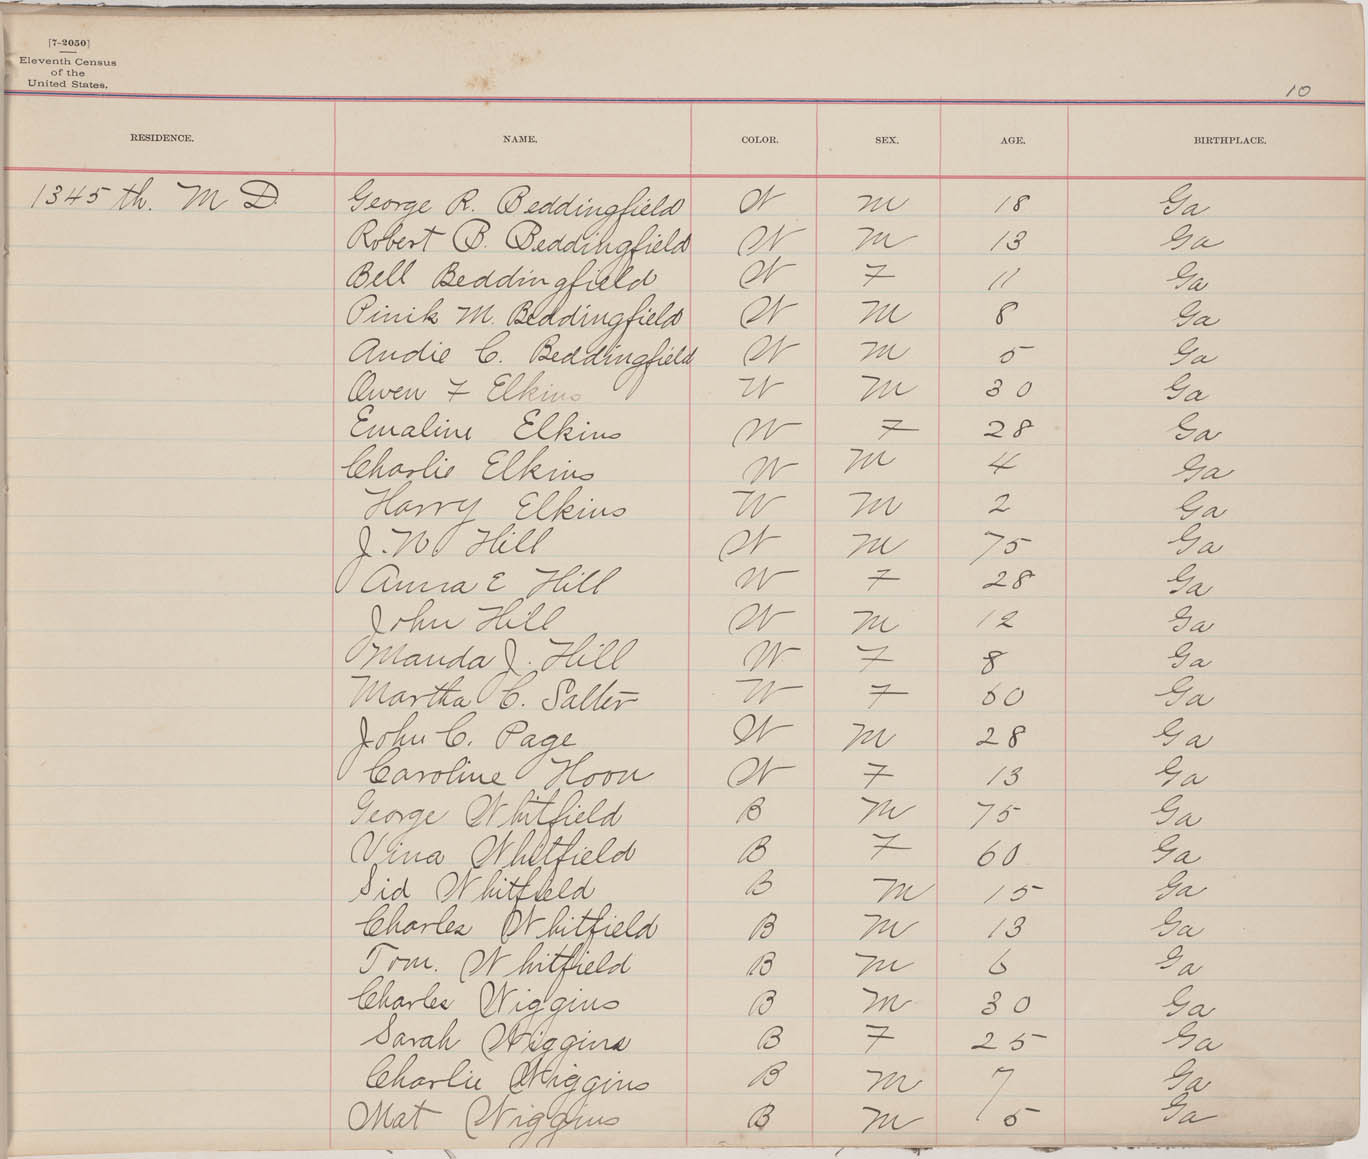 [7-2050]
Eleventh Census
of the
United States.
10
RESIDENCE. NAME. COLOR. SEX. AGE. BIRTHPLACE.
1345th. M D. George R. Beddingfield W M 18 Ga
Robert B. Beddingfield W M 13 Ga
Bell Beddingfield W F 11 Ga
Pink M. Beddingfield W M 8 Ga
Audie C. Beddingfield W M 5 Ga
Owen F Elkins W M 30 Ga
Emaline Elkins W F 28 Ga
Charlie Elkins W M 4 Ga
Harry Elkins W M 2 Ga
J. W Hill W M 75 Ga
Anna E Hill W F 28 Ga
John Hill W M 12 Ga
Manda J. Hill W F 8 Ga
Martha C. Salter W F 60 Ga
John C. Page W M 28 Ga
Caroline W F 13 Ga
George Whitfield B M 75 Ga
Vina Whitfield B F 60 Ga
Sid Whitfield B M 15 Ga
Charles Whitfield B M 13 Ga
Tom. Whitfield B M 6 Ga
Charles Wiggins B M 30 Ga
Sarah Wiggins B F 25 Ga
Charlie Wiggins B M 7 Ga
Mat Wiggins B M 5 Ga